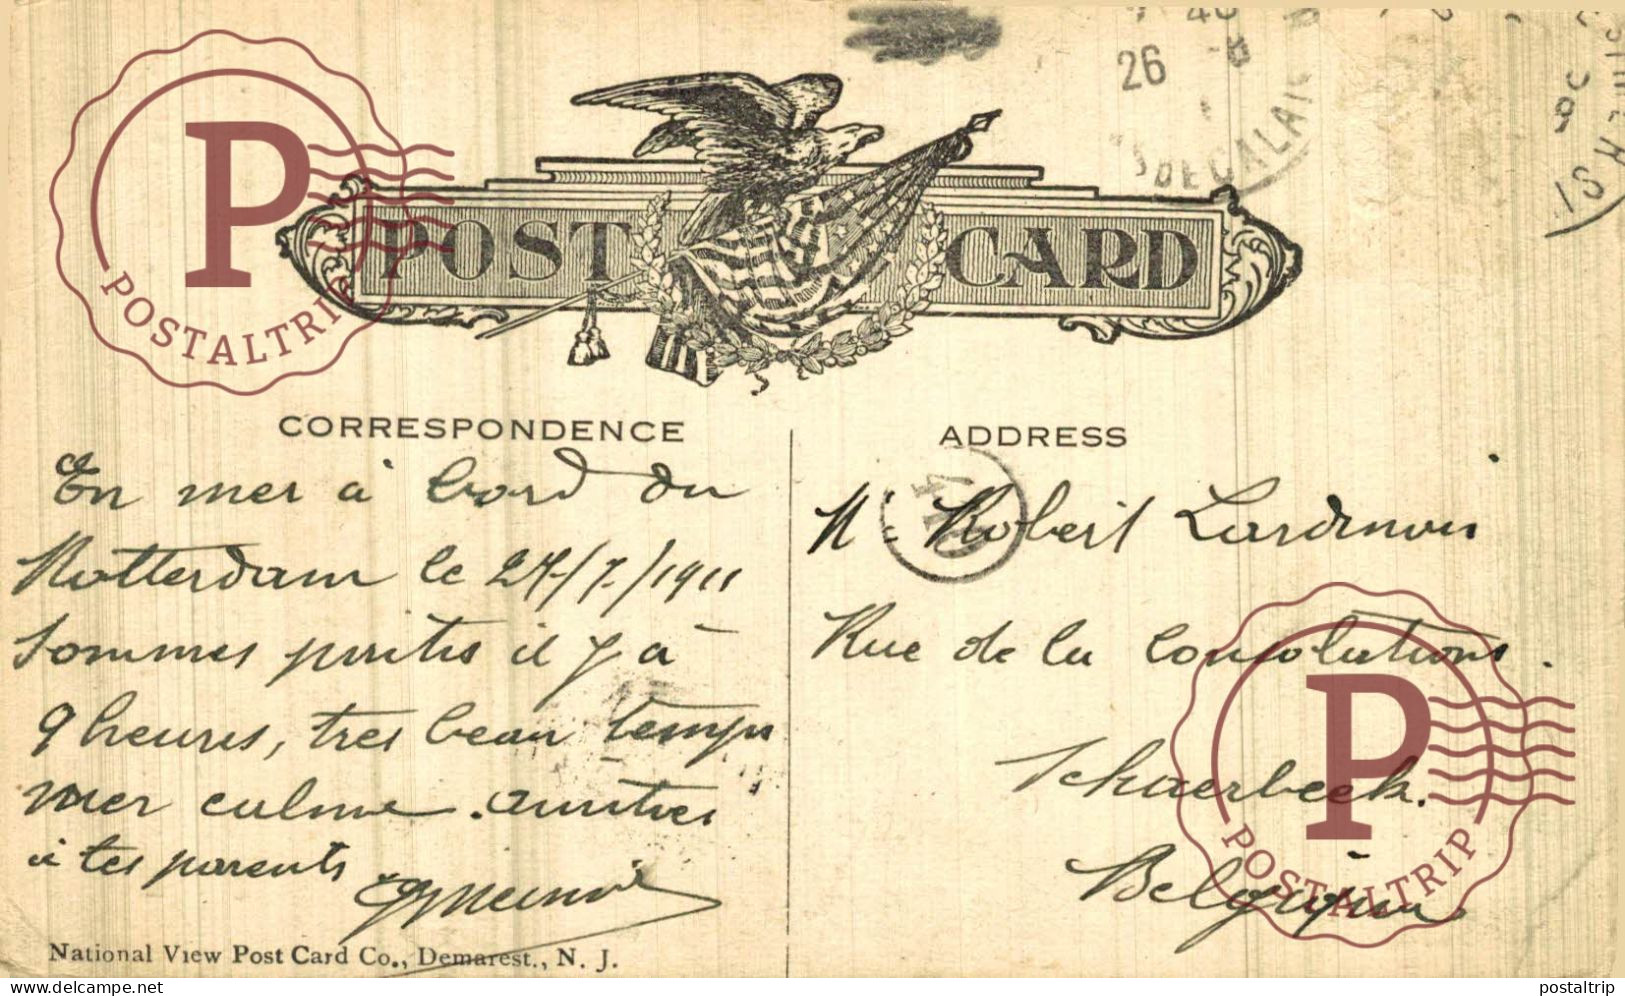 POST CARD
26
PAS DE CALAIS
CORRESPONDENCE
En mer à bord du
Rotterdam le 24/7/1911
Sommes partis il y a
9 heures, tres beau temps
mer calme. amitiés
à tes parents
National View Post Card Co., Demarest., N. J.
ADDRESS
Mr Robert Lardinois
Rue de la Consolations.
Schaerbeek.
Belgique
P
POSTALTRIP
P
POSTALTRIP
www.delcampe.net
postaltrip